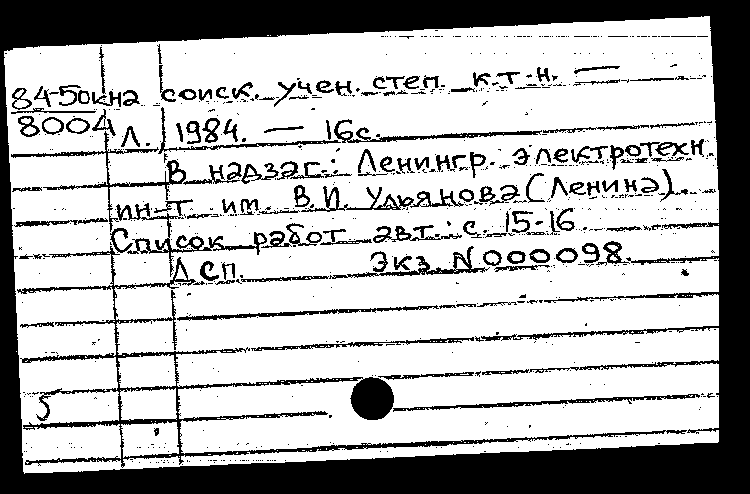 84-5окна соиск. учен. степ. к.т.н. —
8004 Л., 1984. — 16с.
В надзаг.: Ленингр. электротехн.
ин-т им. В.И. Ульянова (Ленина).
Список работ авт.: с. 15-16.
ДСП. Экз. N000098.
5